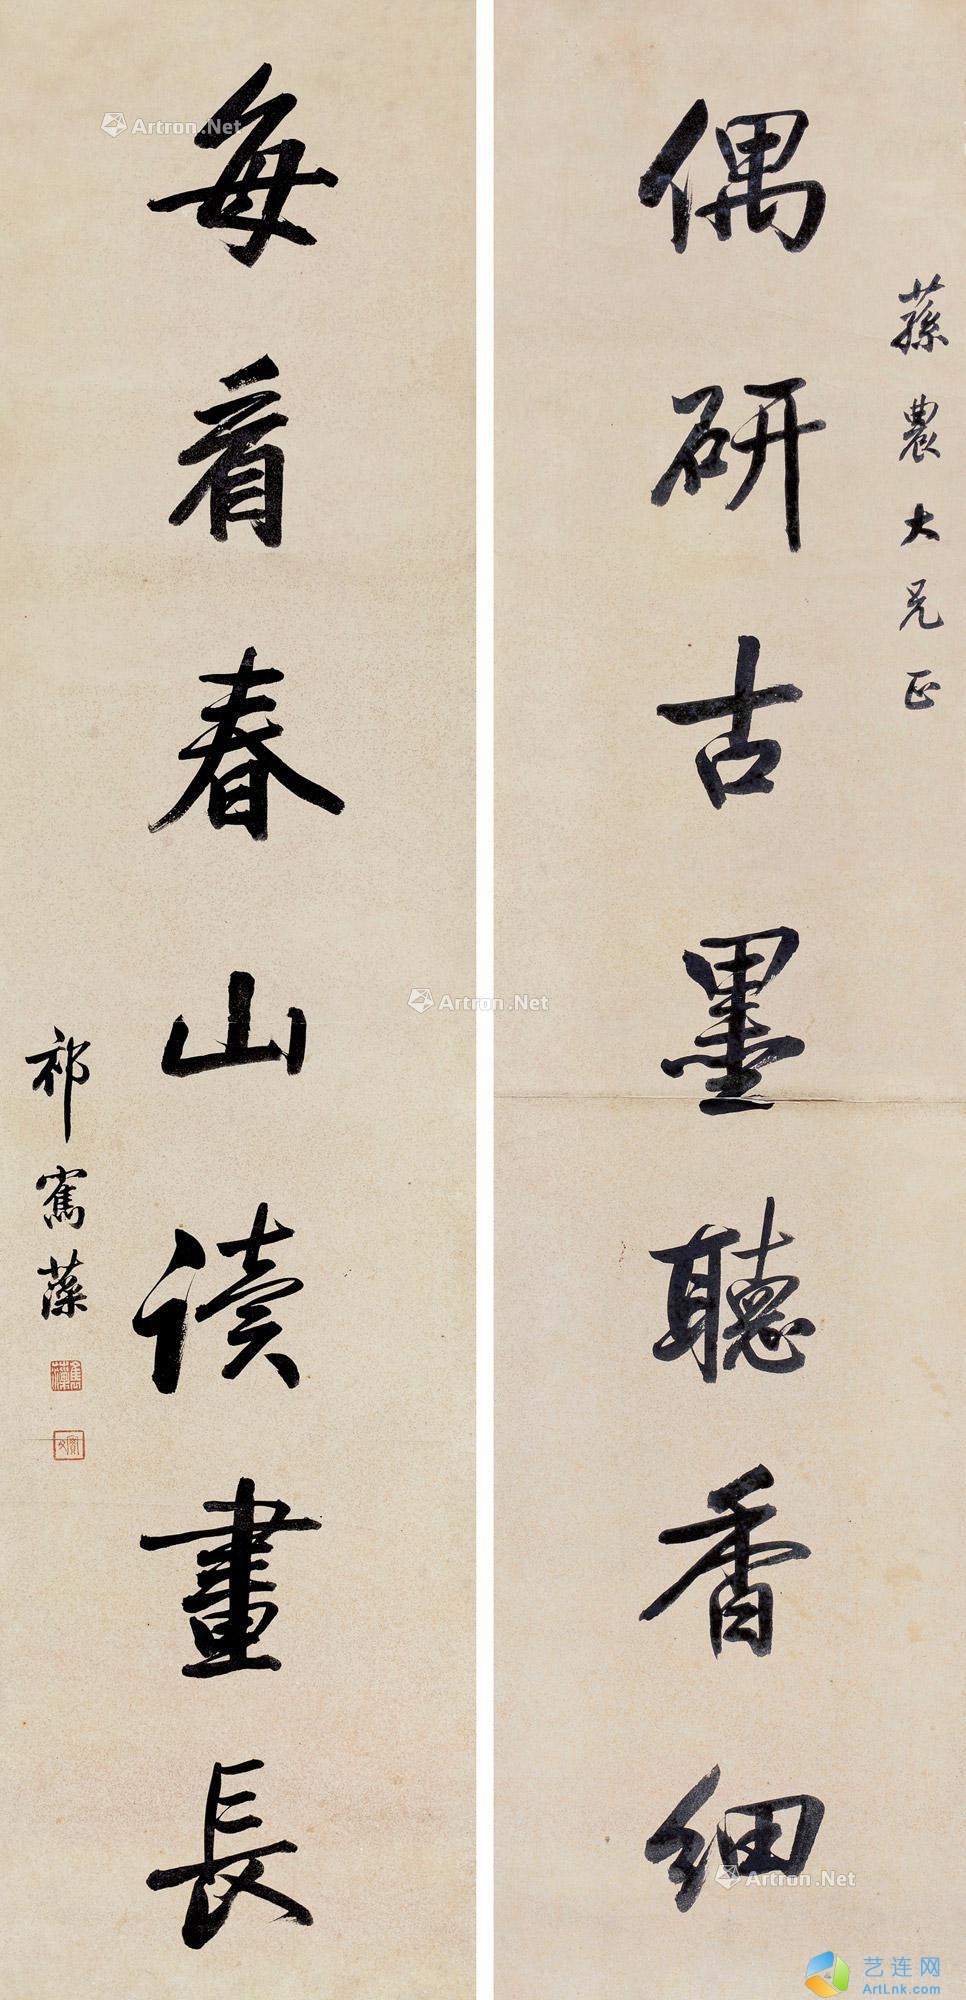 蓀農大兄正
偶研古墨聽香細
每看春山讀畫長
祁寯藻
Artron.Net
Artron.Net
Artron.Net
艺连网
ArtLnk.com